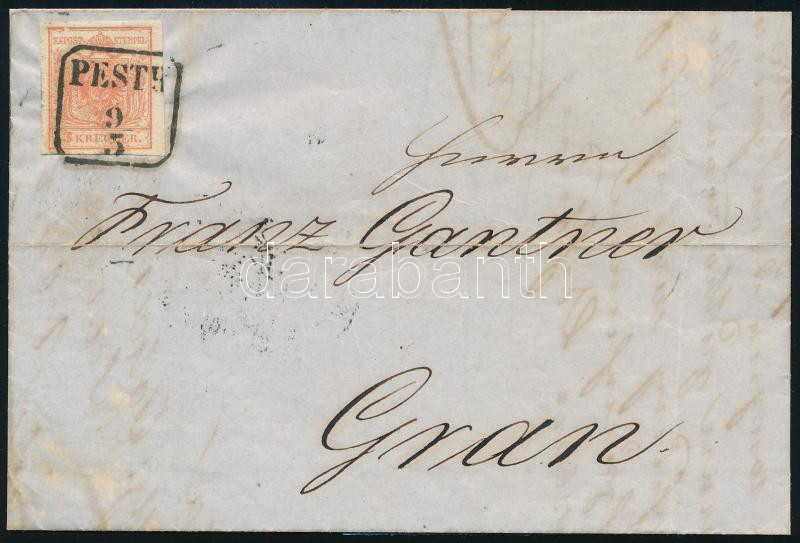 K.K.POST-STEMPEL
PESTH
9
5
3 KREUZER.
Herrn
Franz Gantner
darabanth
Gran.